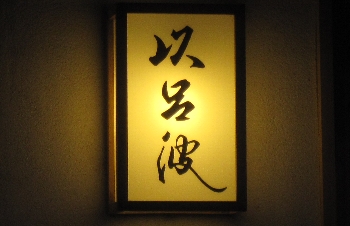 以呂波